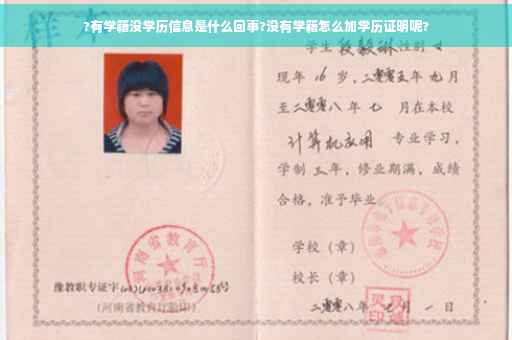 ?有学籍没学历信息是什么回事?没有学籍怎么加学历证明呢?
样本
学生段毅琳性别女
现年16岁，二零零五年九月
至二零零八年七月在本校
计算机应用 专业学习，
学制三年，修业期满，成绩
合格，准予毕业。
学校（章）
校长（章）
二零零八年七月一日
河南省教育厅
豫教职专证字
（河南省教育厅验印）